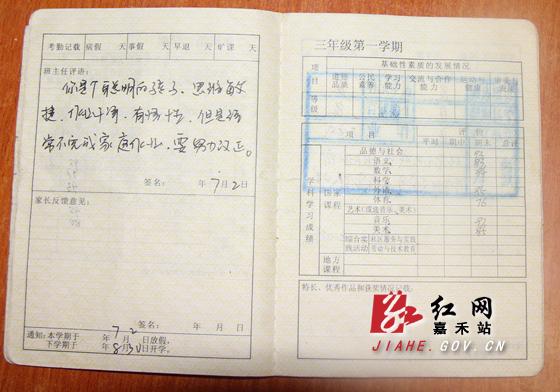 考勤记载 病假 天 事假 天 早退 天 旷课 天
班主任评语:
你是个有聪明的孩子、思维敏
捷、作业干净、有悟性、但是经
常不完成家庭作业,要努力改正。
签名: 年7月2日
家长反馈意见:
签名: 年 月 日
通知:本学期于 年7月2日放假,
下学期于 年8月30日开学。
三年级第一学期
项目 基础性素质的发展情况
道德品质 公民素养 学习能力 交流与合作能力 运动与健康 审美与表现
等级
项目 评价
平时 期中 期末 总评
学科学习成绩
国家课程
品德与社会
语文
数学
科学
外语
体育 76
艺术(或选音乐、美术)
音乐
美术
综合实践活动 社区服务与实践
劳动与技术教育
地方课程
特长、优秀作品和获奖情况记载:
红网
嘉禾站
JIAHE.GOV.CN